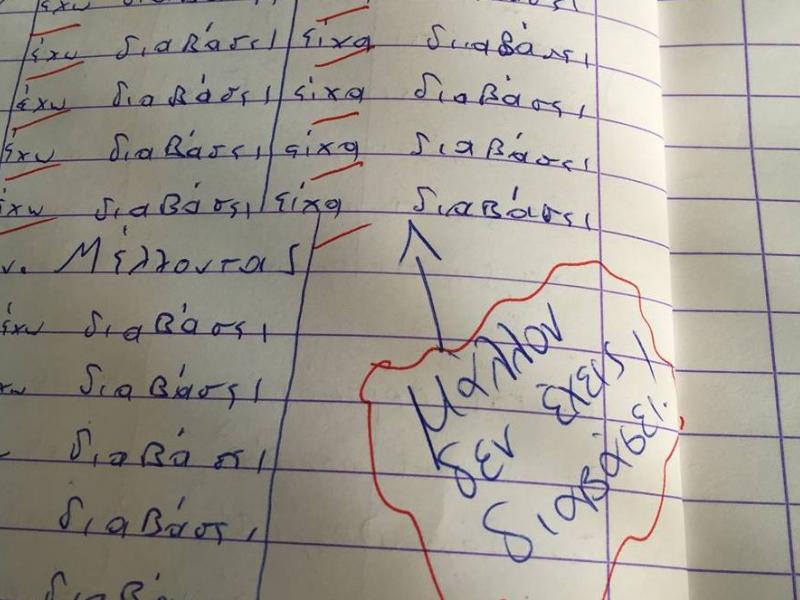 έχω διαβάσει είχα διαβάσει
έχω διαβάσει είχα διαβάσει
έχω διαβάσει είχα διαβάσει
έχω διαβάσει είχα διαβάσει
Μέλλοντας
έχω διαβάσει
διαβάσει
διαβάσει
διαβάσει
μάλλον
δεν έχεις
διαβάσει.